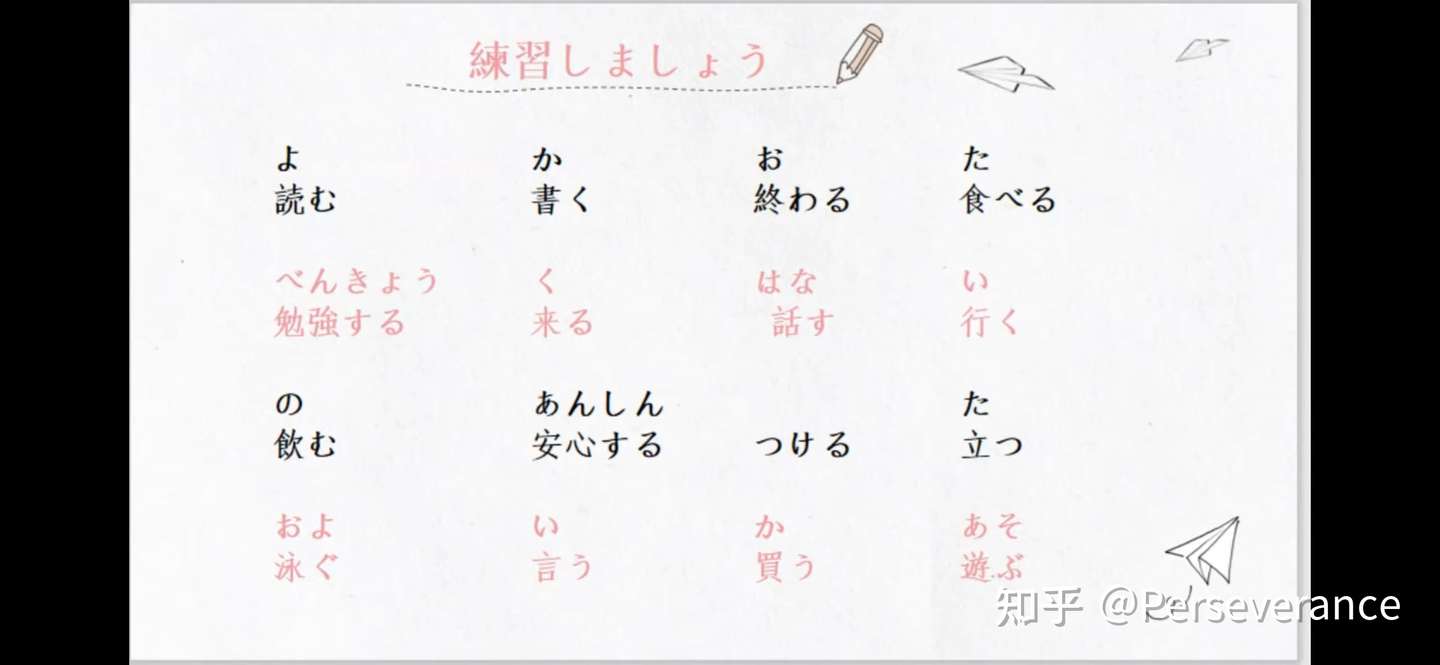 練習しましょう
よ か お た
読む 書く 終わる 食べる
べんきょう く はな い
勉強する 来る 話す 行く
の あんしん た
飲む 安心する つける 立つ
およ い か あそ
泳ぐ 言う 買う 遊ぶ
知乎 @Perseverance